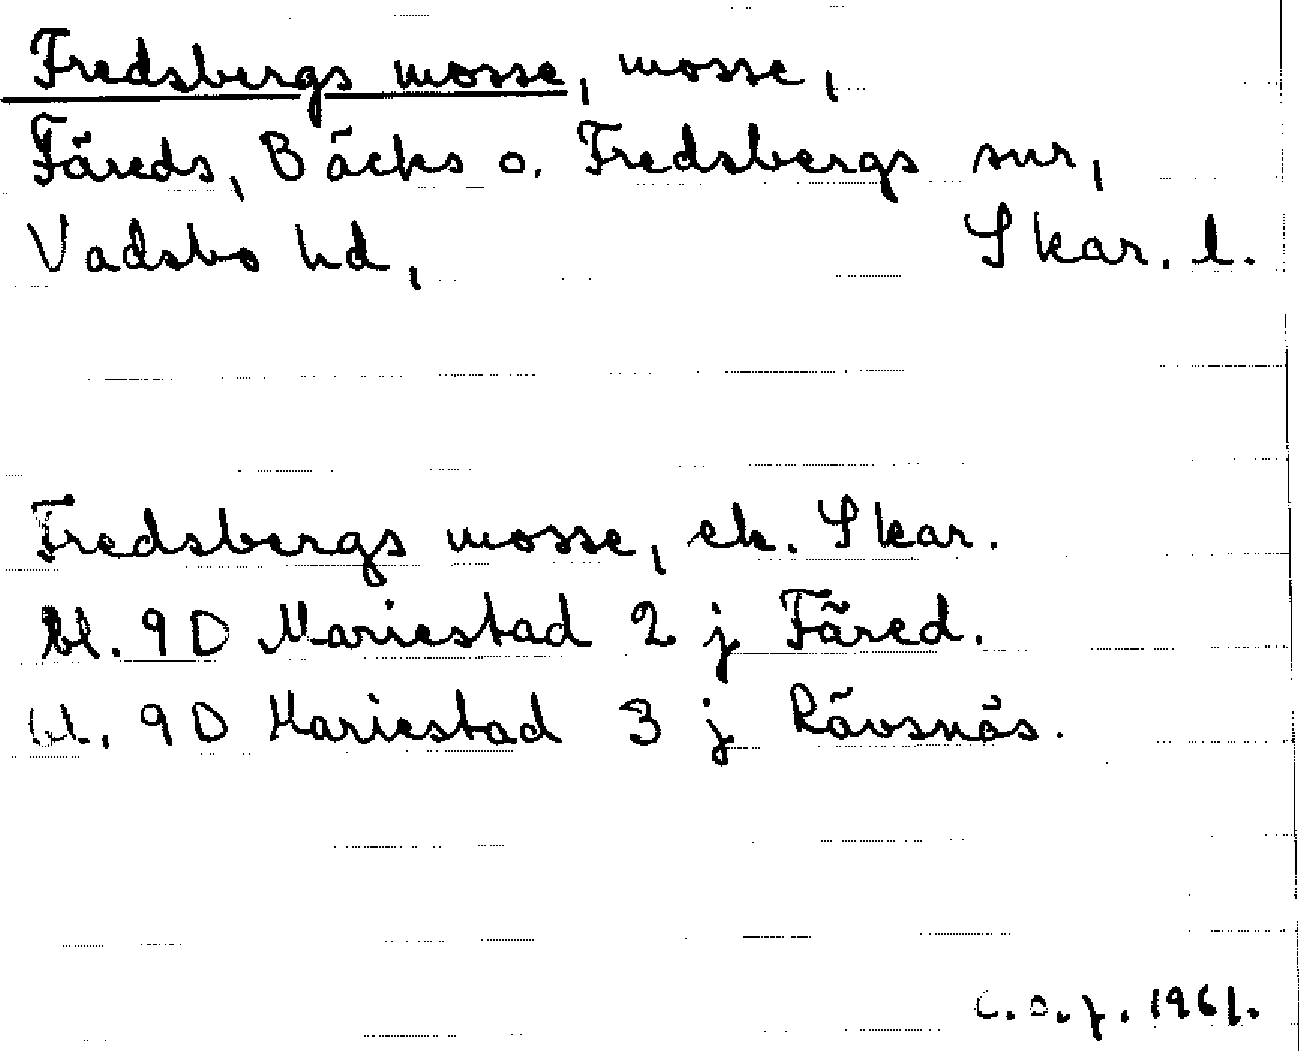 Fredsbergs mosse, mosse,
Färeds, Bäcks o. Fredsbergs snr,
Vadsbo hd, Skar. l.
Fredsbergs mosse, ek. Skar.
bl. 9D Mariestad 2 j Färed.
bl. 9D Mariestad 3 j Rävsnäs.
C.O.J. 1961.